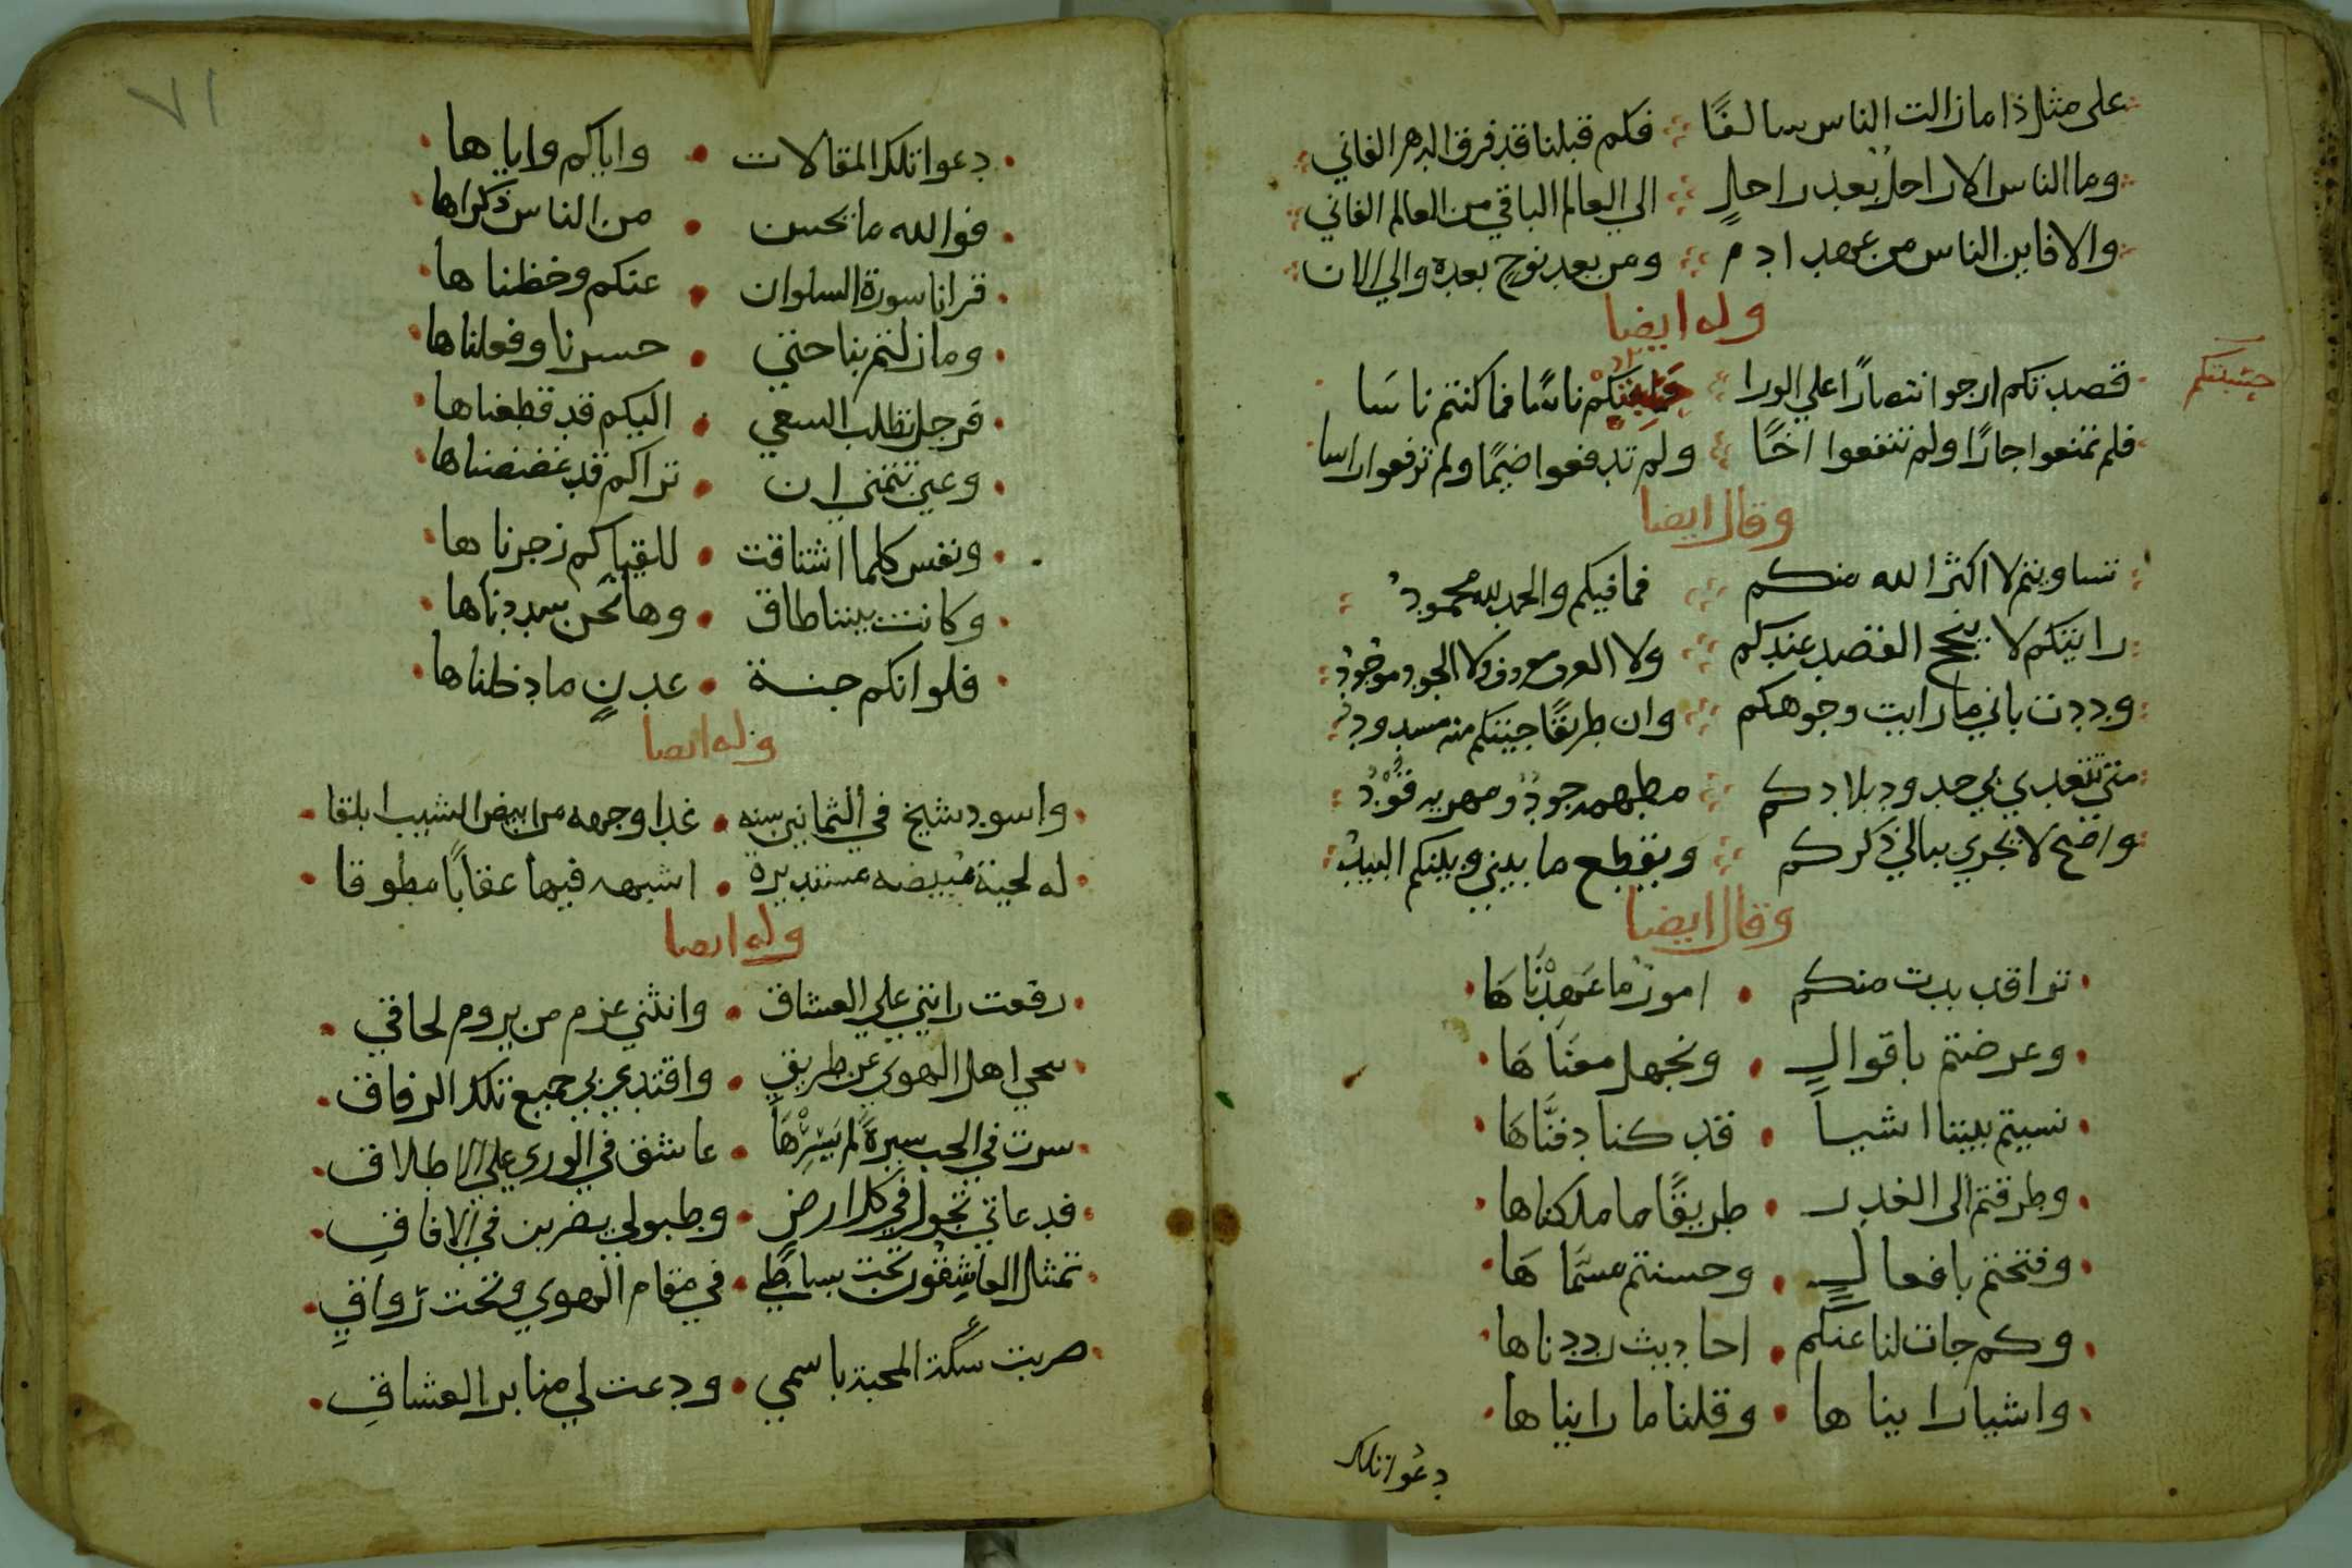 على مثل ذا ما زالت الناس سالفًا فكم قبلنا قد فرق الدهر الفاني
وما الناس الا راحل بعد راحلٍ الي العالم الباقي من العالم الفاني
والا فاين الناس من عهد ادم ومن بعد نوحٍ بعده والي الان
وله ايضا
قصدتكم ارجو انتصارًا علي الورا ناسًا فما كنتم ناسَا
حسبتكم
فلم تمنعوا جارًا ولم تنفعوا اخًا ولم تدفعوا ضيمًا ولم ترفعوا راسا
وقال ايضا
تساويتم لا اكثر الله منكم فما فيكم والحمد لله محمود
رايتكم لا ينجح القصد عندكم ولا العرف معروف ولا الجود موجود
وددت باني ما رايت وجوهكم وان طريقًا جيتكم منه مسدود
متي تتعدي بي حدود بلادكم مطهمه جودٌ ومهريه قُوْدُ
واضح لا يجري ببالي ذكركم ويقطع ما بيني وبينكم البيد
وقال ايضا
تراقد بدت منكم امور ما عَهِدْنَاهَا
وعرضتم باقوالٍ ونجهل معنَاهَا
نسيتم بيننا اشيا قد كنا دفنَّاهَا
وطرقتم الى الغدر طريقًا ما ملكناها
وفتحتم بافعالٍ وحسنتم مسَّماهَا
وكم جات لنا عنكم احاديث رددناها
واشيا رايناها وقلنا ما رايناها
دعوا تلك
٧١
دعوا تلك المقالات واياكم واياها
فوالله ما يحسن من الناس ذكراها
قرانا سورة السلوان عنكم وحفظناها
وما زلتم بنا حتي حسرنا وفعلناها
فرجل تطلب السعي اليكم قد قطعناها
وعين تتمني ان تراكم قد غضضناها
ونفس كلما اشتاقت للقياكم زجرناها
وكانت بيننا طاق وها نحن سددناها
فلو انكم جنة عدنٍ ما دخلناها
وله ايضا
واسود شيخ في الثمانين سنه غدا وجهه من ابيض الشيب ابلقا
له لحية مبيضه مستديرة اشبهه فيها عقابًا مطوقا
وله ايضا
رفعت رايتي علي العشاق وانثني عزم من يروم لحاقي
سحي اهل الهوي عن طريقي واقتدي بي جميع تلك الرفاق
سرت في الحب سيرةً لم يَسِرْهَا عاشق في الوري علي الاطلاق
فدعاتي تجول في كل ارض وطبولي يضربن في الافاقِ
تمثل العاشقون تحت بساطي في مقام الهوي وتحت رواقي
ضربت سكة المحبة باسمي ودعت لي منابر العشاقِ